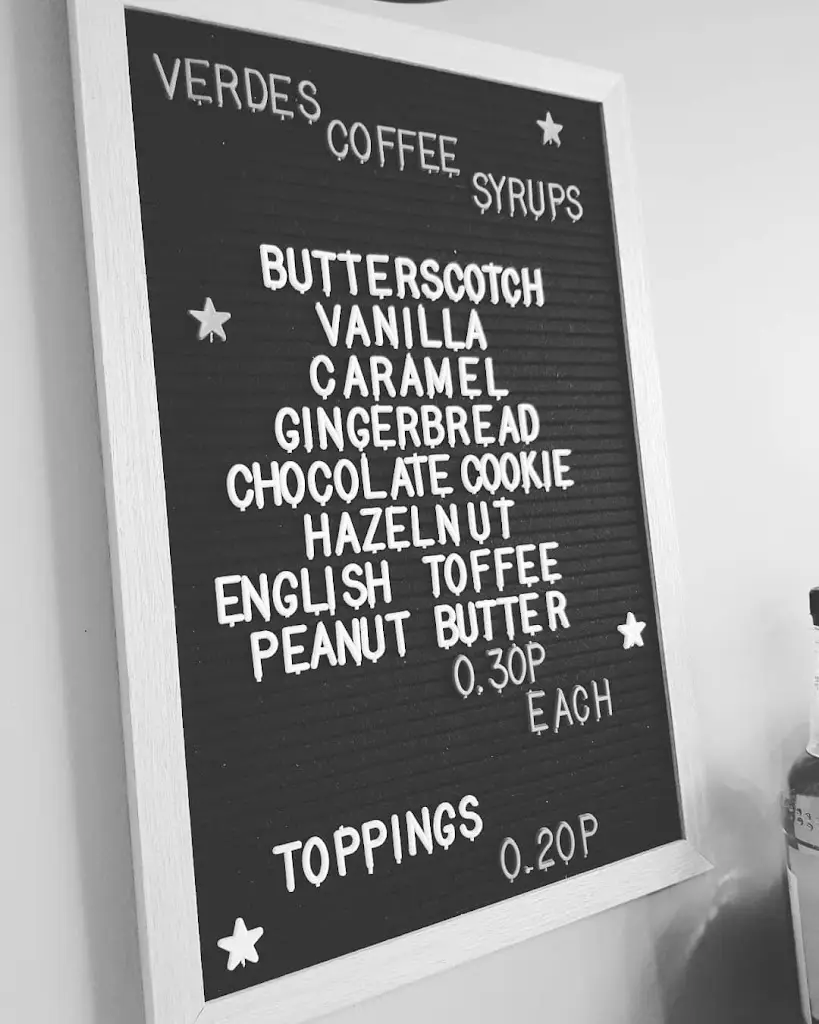 VERDES
COFFEE
SYRUPS
BUTTERSCOTCH
VANILLA
CARAMEL
GINGERBREAD
CHOCOLATE COOKIE
HAZELNUT
ENGLISH TOFFEE
PEANUT BUTTER
0.30P
EACH
TOPPINGS 0.20P